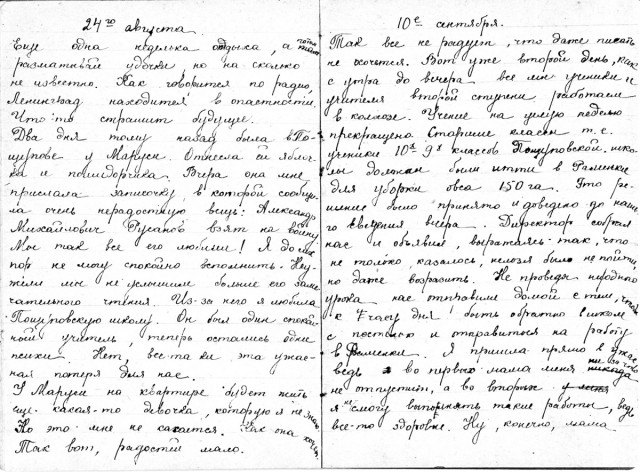 24го августа.
Еще одна неделька отдыха, а потом
разматывай удочки но на сколько
не известно. Как говорится по радио,
Ленинград находится в опасности.
Что-то страшит будущее.
Два дня тому назад была в По-
щупове у Маруси. Отнесла ей яблоч-
ка и помидорчика. Вчера она мне
прислала записочку, в которой сообщи-
ла очень нерадостную вещь: Александр
Михайлович Русанов взят на войну
Мы так все его любили! Я до сих
пор не могу спокойно вспомнить. Неу-
жели мы не услышим больше его заме-
чательного чтения. Из-за него я любила
Пощуповскую школу. Он был один спокой-
ный учитель, теперь остались одни
психи. Нет, все-таки эта ужас-
ная потеря для нас.
У Маруси на квартире будет жить
еще какая-то девочка, которую я не знаю.
Но это мне не касается. Как она хочет.
Так вот, радостей мало.
10е сентября.
Так все не радует, что даже писать
не хочется. Вот уже второй день, как
с утра до вечера все мы ученики и
учителя второй ступени работаем
в колхозе. Учение на целую неделю
прекращено Старшие классы т.е.
ученики 10х 9х классов Пощуповской шко-
лы должны были итти в Раменки
для уборки овса 150 га. Это ре-
шение было принято и доведено до наше-
го сведения вчера. Директор собрал
нас и объявил, выражаясь так, что
не только казалось, нельзя было не пойти,
но даже возразить. Не проведя ни одного
урока нас отправили домой с тем, чтобы
к 2 часу дня быть обратно в школе
с постелью и отправиться на работу
в Раменки. Я пришла прямо в ужас
ведь во первых мама меня ни за что
не отпустит, а во вторых
я не смогу выполнять такие работы, ведь
все-то здоровье. Ну, конечно, мама